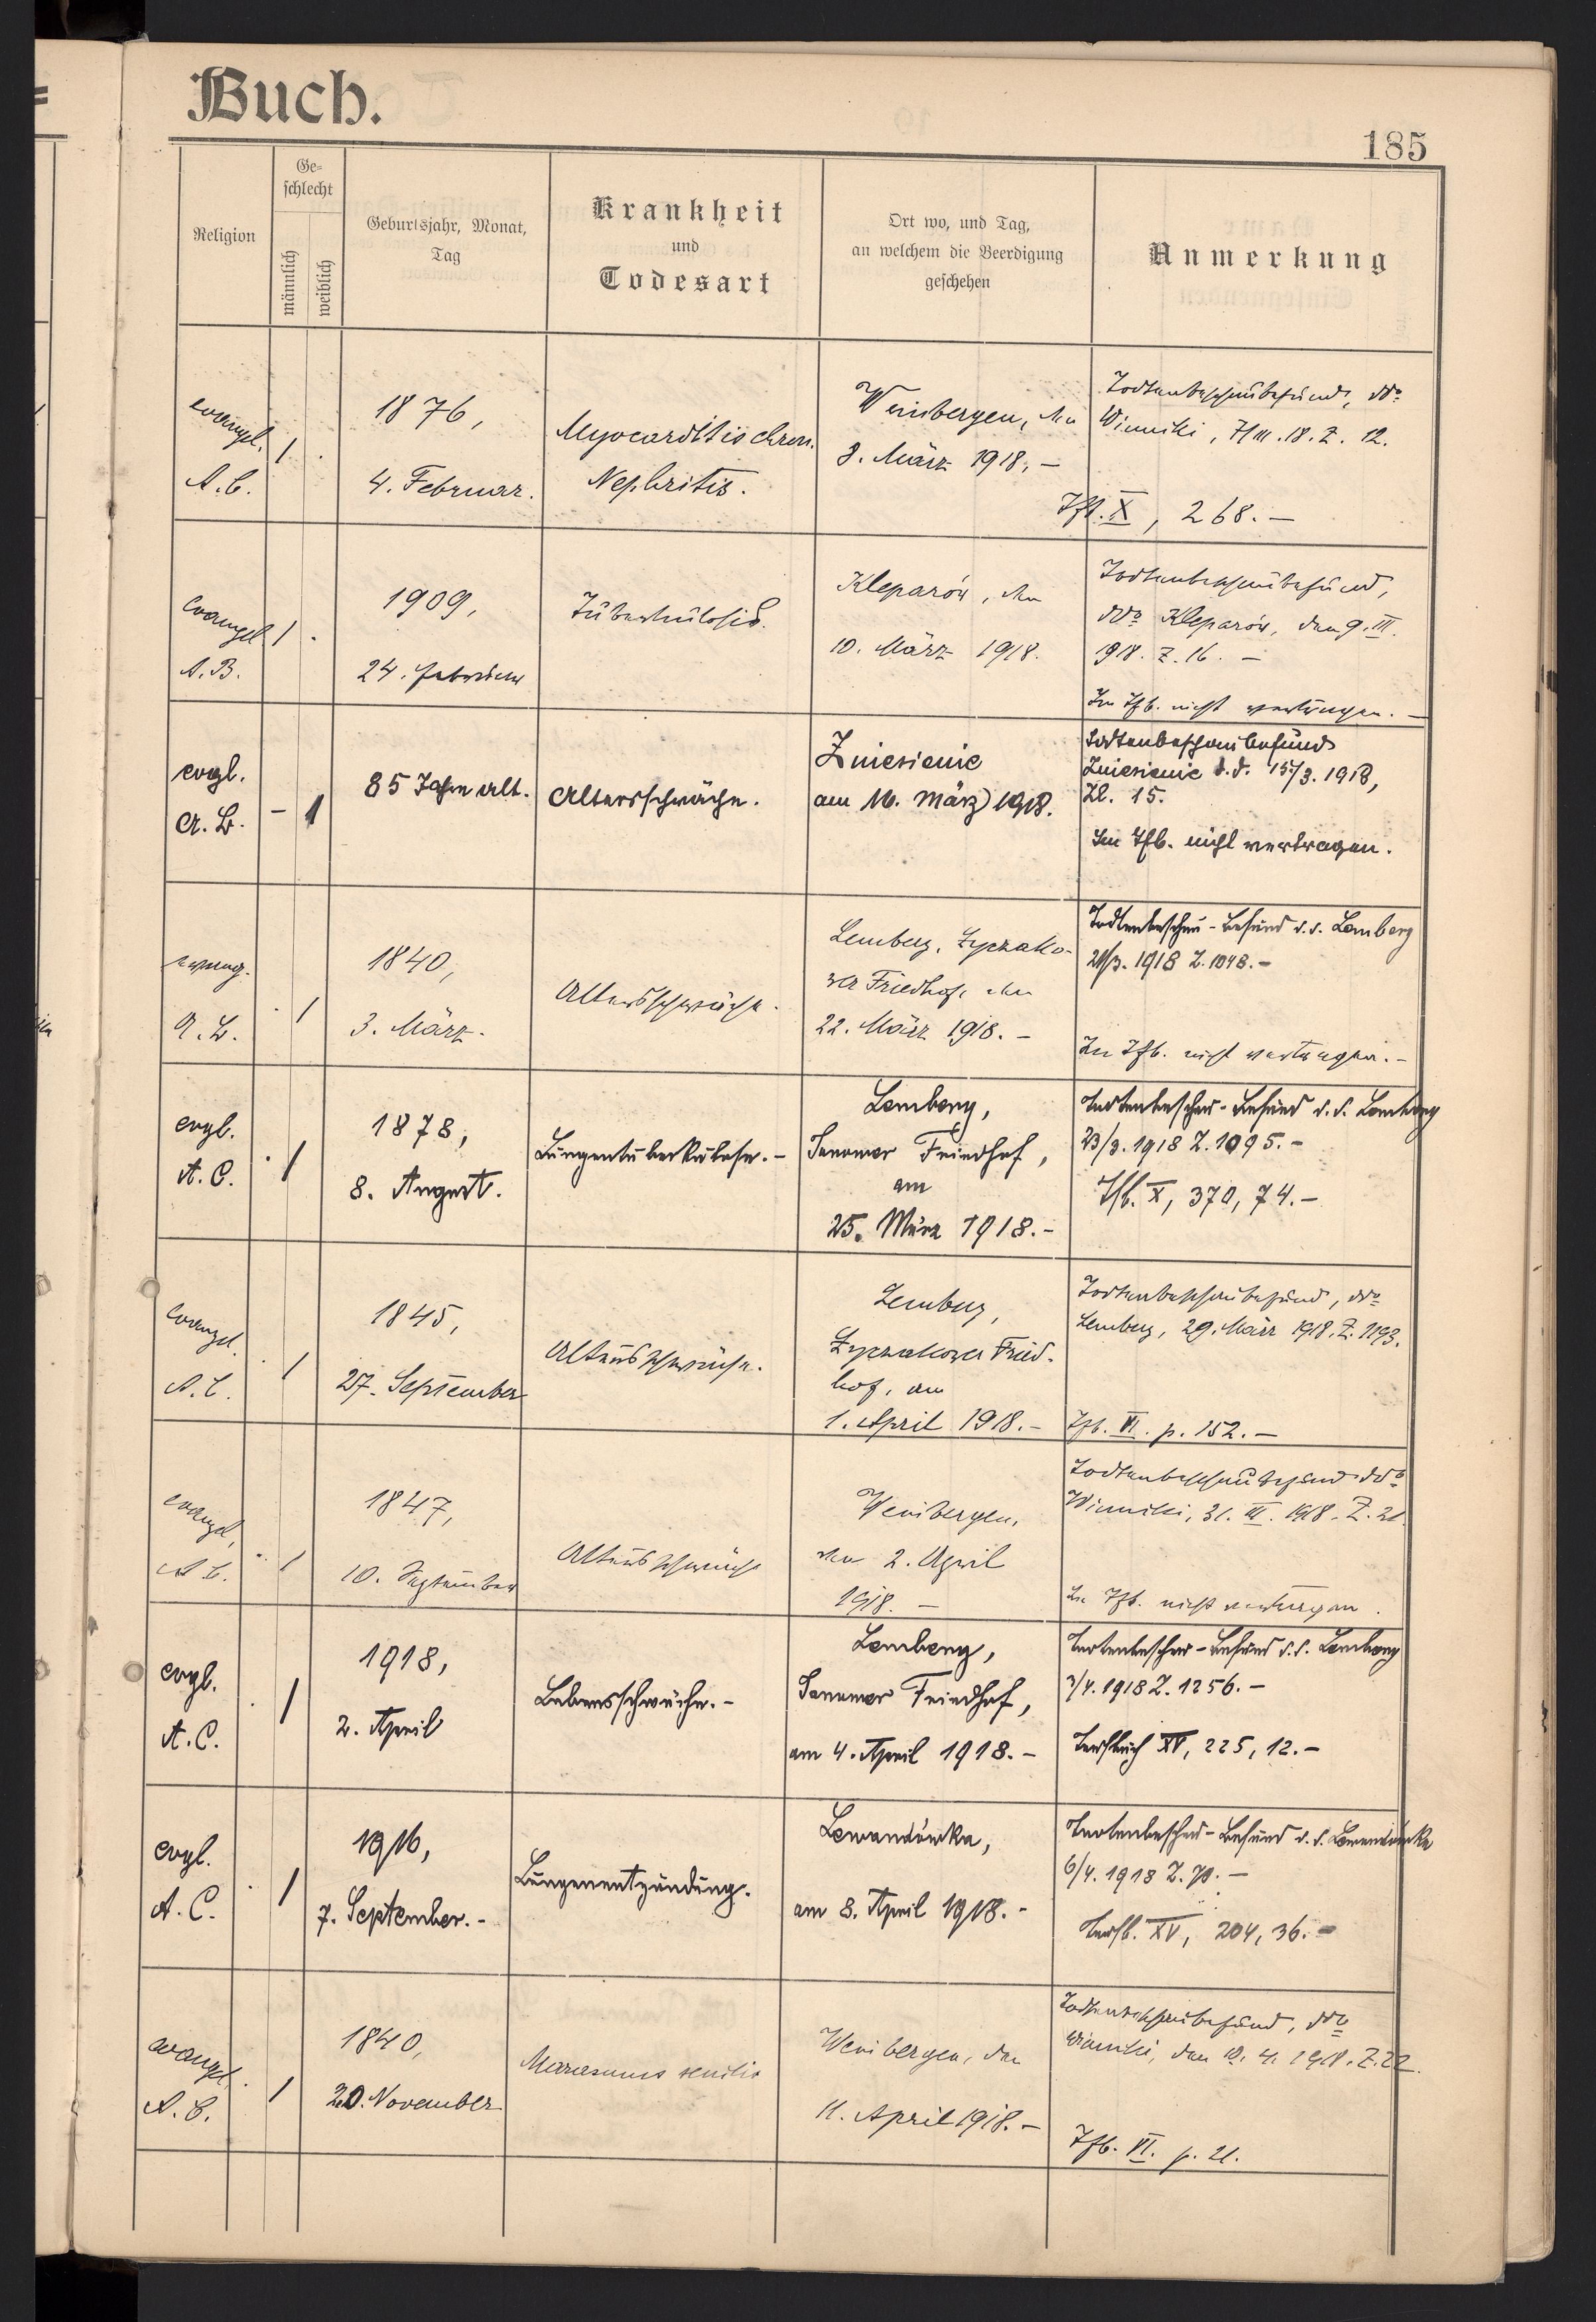 Buch.
185
Religion
Ge-
schlecht
männlich
weiblich
Geburtsjahr, Monat,
Tag
Krankheit
und
Todesart
Ort wo, und Tag,
an welchem die Beerdigung
geschehen
Anmerkung
evangel.
A. C.
1 .
1876,
4. Februar.
Myocarditis chron.
Nephritis.
Weinbergen, den
8. März 1918. –
Todtenbeschaubefund, ddo
Winniki, 7/III. 18. Z. 12.
Tfb. X, 268. –
evangel.
A. B.
1 .
1909,
24. Februar
Tuberkulosis.
Kleparów, den
10. März 1918.
Todtenbeschaubefund,
ddo Kleparów, den 9. III.
1918. Z. 16. –
Im Tfb. nicht vertragen. –
evgl.
A. B.
– 1
85 Jahre alt.
Altersschwäche.
Zniesienie
am 16. März 1918.
Todtenbeschaubefund
Zniesienie d. d. 15/3. 1918,
Zl. 15.
Im Tfb. nicht vertragen.
evang.
A. B.
. 1
1840,
3. März.
Altersschwäche.
Lemberg, Łyczako-
wer Friedhof, den
22. März 1918. –
Todtenbeschau-Befund d. d. Lemberg
21/3. 1918 Z. 1048. –
Im Tfb. nicht vertragen. –
evgl.
A. C.
. 1
1878,
8. August.
Lungentuberkulose. –
Lemberg,
Janower Friedhof,
am
25. März 1918. –
Todtenbeschau-Befund d. d. Lemberg
23/3. 1918 Z. 1095. –
Tfb. X, 370, 74. –
evangel.
A. C.
. 1
1845,
27. September
Altersschwäche.
Lemberg,
Łyczakower Fried-
hof, am
1. April 1918. –
Todtenbeschaubefund, ddo
Lemberg, 29. März 1918. Z. 1193.
Tfb. VI. p. 152. –
evangel.
A. C.
. 1
1847,
10. September
Altersschwäche
Weinbergen,
den 2. April
1918. –
Todtenbeschaubefund ddo
Winniki, 31. III. 1918. Z. 21.
Im Tfb. nicht vertragen.
evgl.
A. C.
. 1
1918,
2. April
Lebensschwäche. –
Lemberg,
Janower Friedhof,
am 4. April 1918. –
Todtenbeschau-Befund d. d. Lemberg
3/4. 1918 Z. 1256. –
Taufbuch XV, 225, 12. –
evgl.
A. C.
. 1
1916,
7. September. –
Lungenentzündung.
Lewandówka,
am 8. April 1918. –
Todtenbeschau-Befund d. d. Lewandówka
6/4. 1918 Z. –
Taufb. XV, 204, 36. –
evangel.
A. C.
. 1
1840,
20. November
Marasmus senilis
Weinbergen, den
11. April 1918. –
Todtenbeschaubefund, ddo
Winniki, den 10. 4. 1918. Z. 22.
Tfb. VI. p. 21.